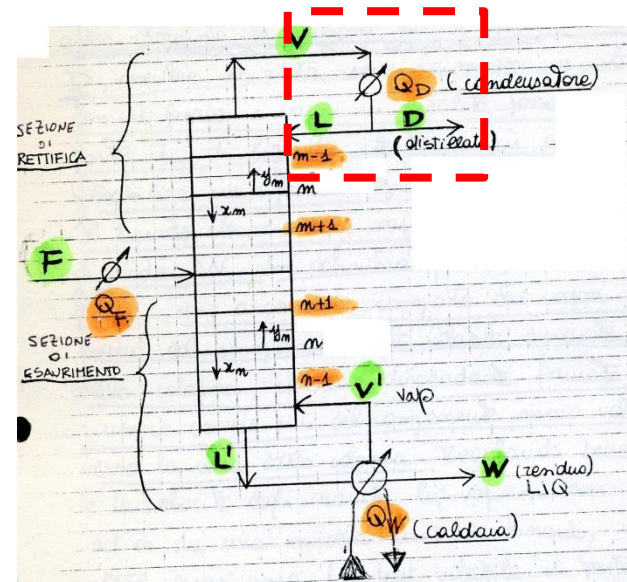 V
Q_D (condensatore)
L D
(distillato)
SEZIONE
DI
RETTIFICA
m-1
y_m m
x_m
m+1
F
Q_F
n+1
SEZIONE
DI
ESAURIMENTO
y_n n
x_n
n-1
V' vap
L'
W (residuo)
LIQ
Q_W (caldaia)